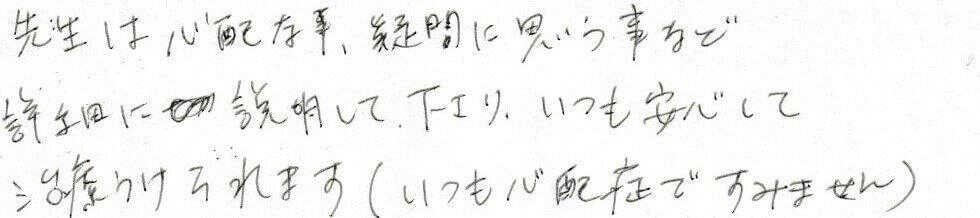 先生は心配な事、疑問に思う事など
詳細に説明して下さり、いつも安心して
治療うけられます(いつも心配症ですみません)